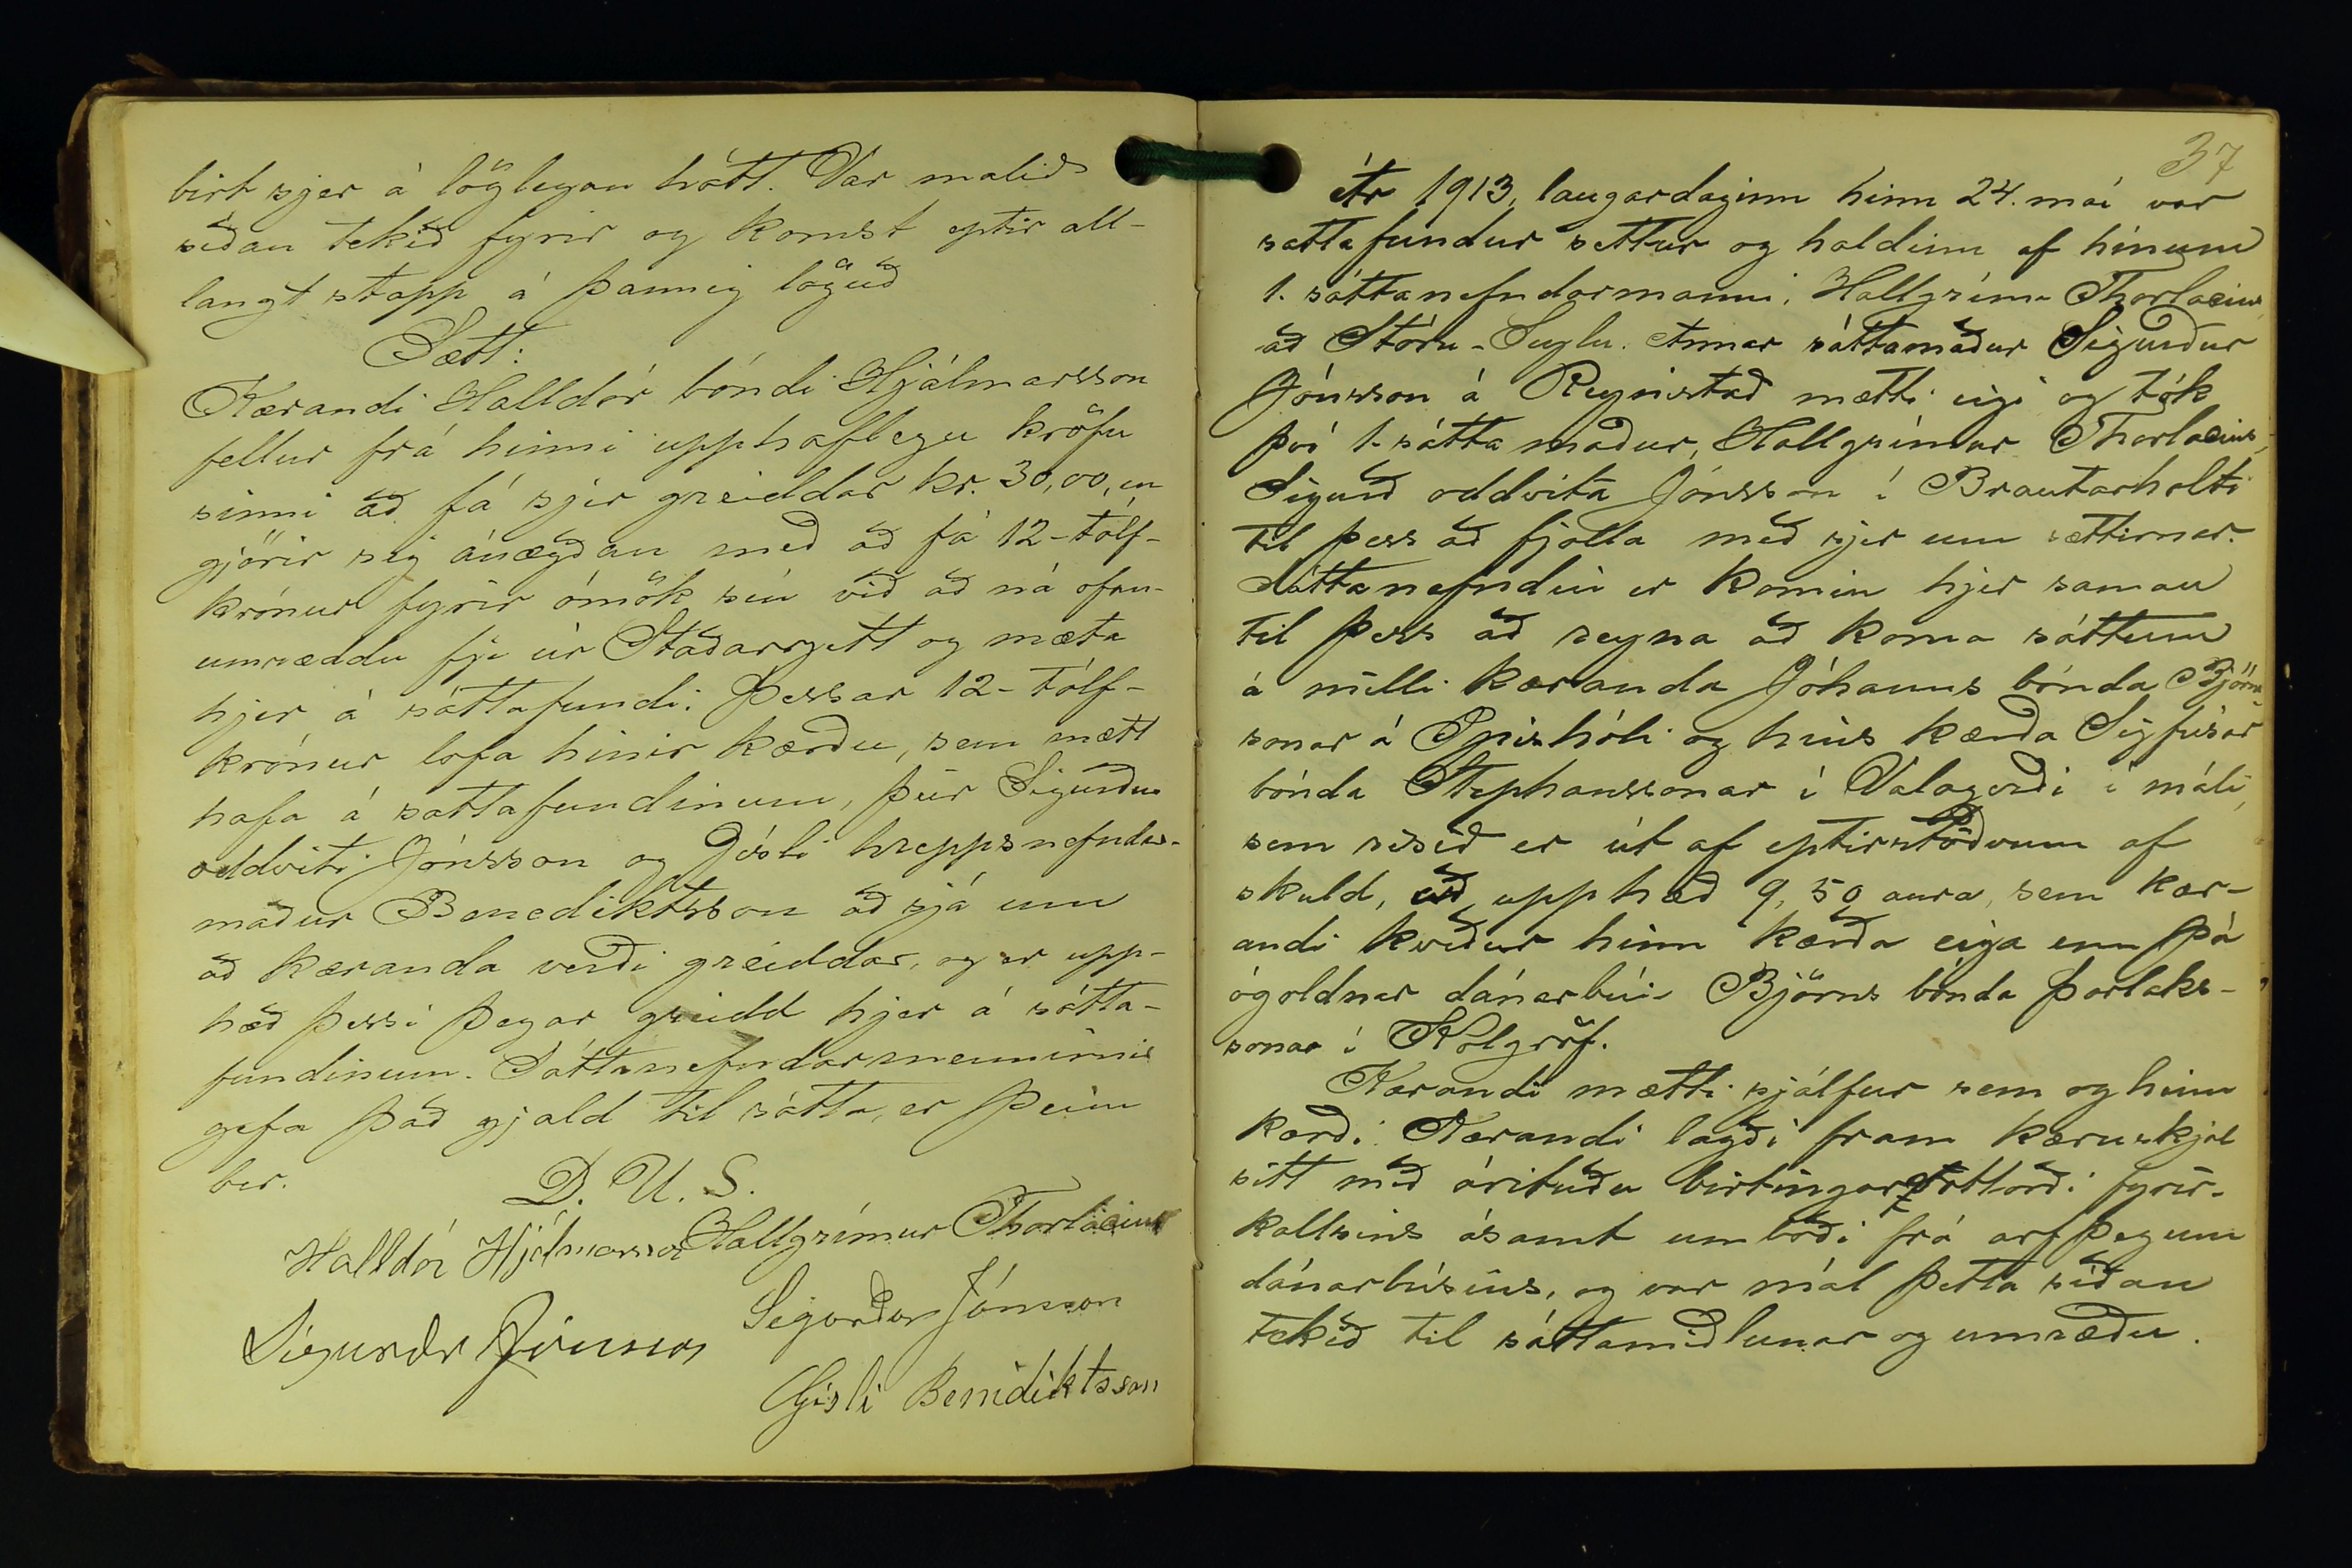 birt sjer á löglegan hátt. Var malið
siðan tekið fyrir og komst eptir all-
langt stapp á þannig löguð
Sætt:
Kærandi Halldór bóndi Hjálmarsson
fellur frá hinni upphaflegu kröfu
sinni að fá sjer greiddar kr. 30,00, en
gjörir sig ánægðan með að fá 12-tólf-
krónur fyrir ómök sín við að ná ofan-
umræddu fje úr Staðarrjett og mæta
hjer á sáttafundi. Þessar 12-tólf-
krónur lofa hinir kærðu, sem mætt
hafa á sattafundinum, þeir Sigurður
oddviti Jónsson og Gísli hreppsnefndar-
maður Benediktsson að sjá um
að kæranda verði greiddar, og er upp-
hæð þessi þegar greidd hjer á sátta-
fundinum. Sáttanefndarmennirnir
gefa það gjald til sátta, er þeim
ber.
D. U. S.
Halldór Hjálmarsson Hallgrímur Thorlacius
Sigurður Jónsson
Sigurðr Jónsson
Gísli Benidiktsson
37
Ár 1913, laugardaginn hinn 24. maí var
sattafundur settur og haldinn af hinum
1. sáttanefndarmanni, Hallgrími Thorlacius,
að Stóru-Seylu. Annar sáttamaður Sigurður
Jónsson á Reynistað mætti eigi og tók
því 1. sáttamaður, Hallgrímur Thorlacius,
Sigurð oddvita Jónsson í Brautarholti
til þess að fjalla með sjer um sættirnar.
Sáttanefndin er komin hjer saman
til þess að reyna að koma sáttum
á milli kæranda Jóhanns bónda Björns
sonar á Grishóli og hins kærða Sigfúsar
bónda Stephanssonar í Valagerði í máli,
sem risið er út af eptirstöðvum af
skuld, að upphæð 9,50 aura, sem kær-
andi kveður hinn kærða eiga enn þá
ógoldnar dánarbúi Björns bónda Þorlaks-
sonar í Kolgröf.
Kærandi mætti sjálfur sem og hinn
kærði. Kærandi lagði fram kæruskjal
sitt með árituðu birtingarvottorði fyrir-
kallsins ásamt umboði frá arfþegum
dánarbúsins, og var mál þetta síðan
tekið til sáttamiðlunar og umræðu.